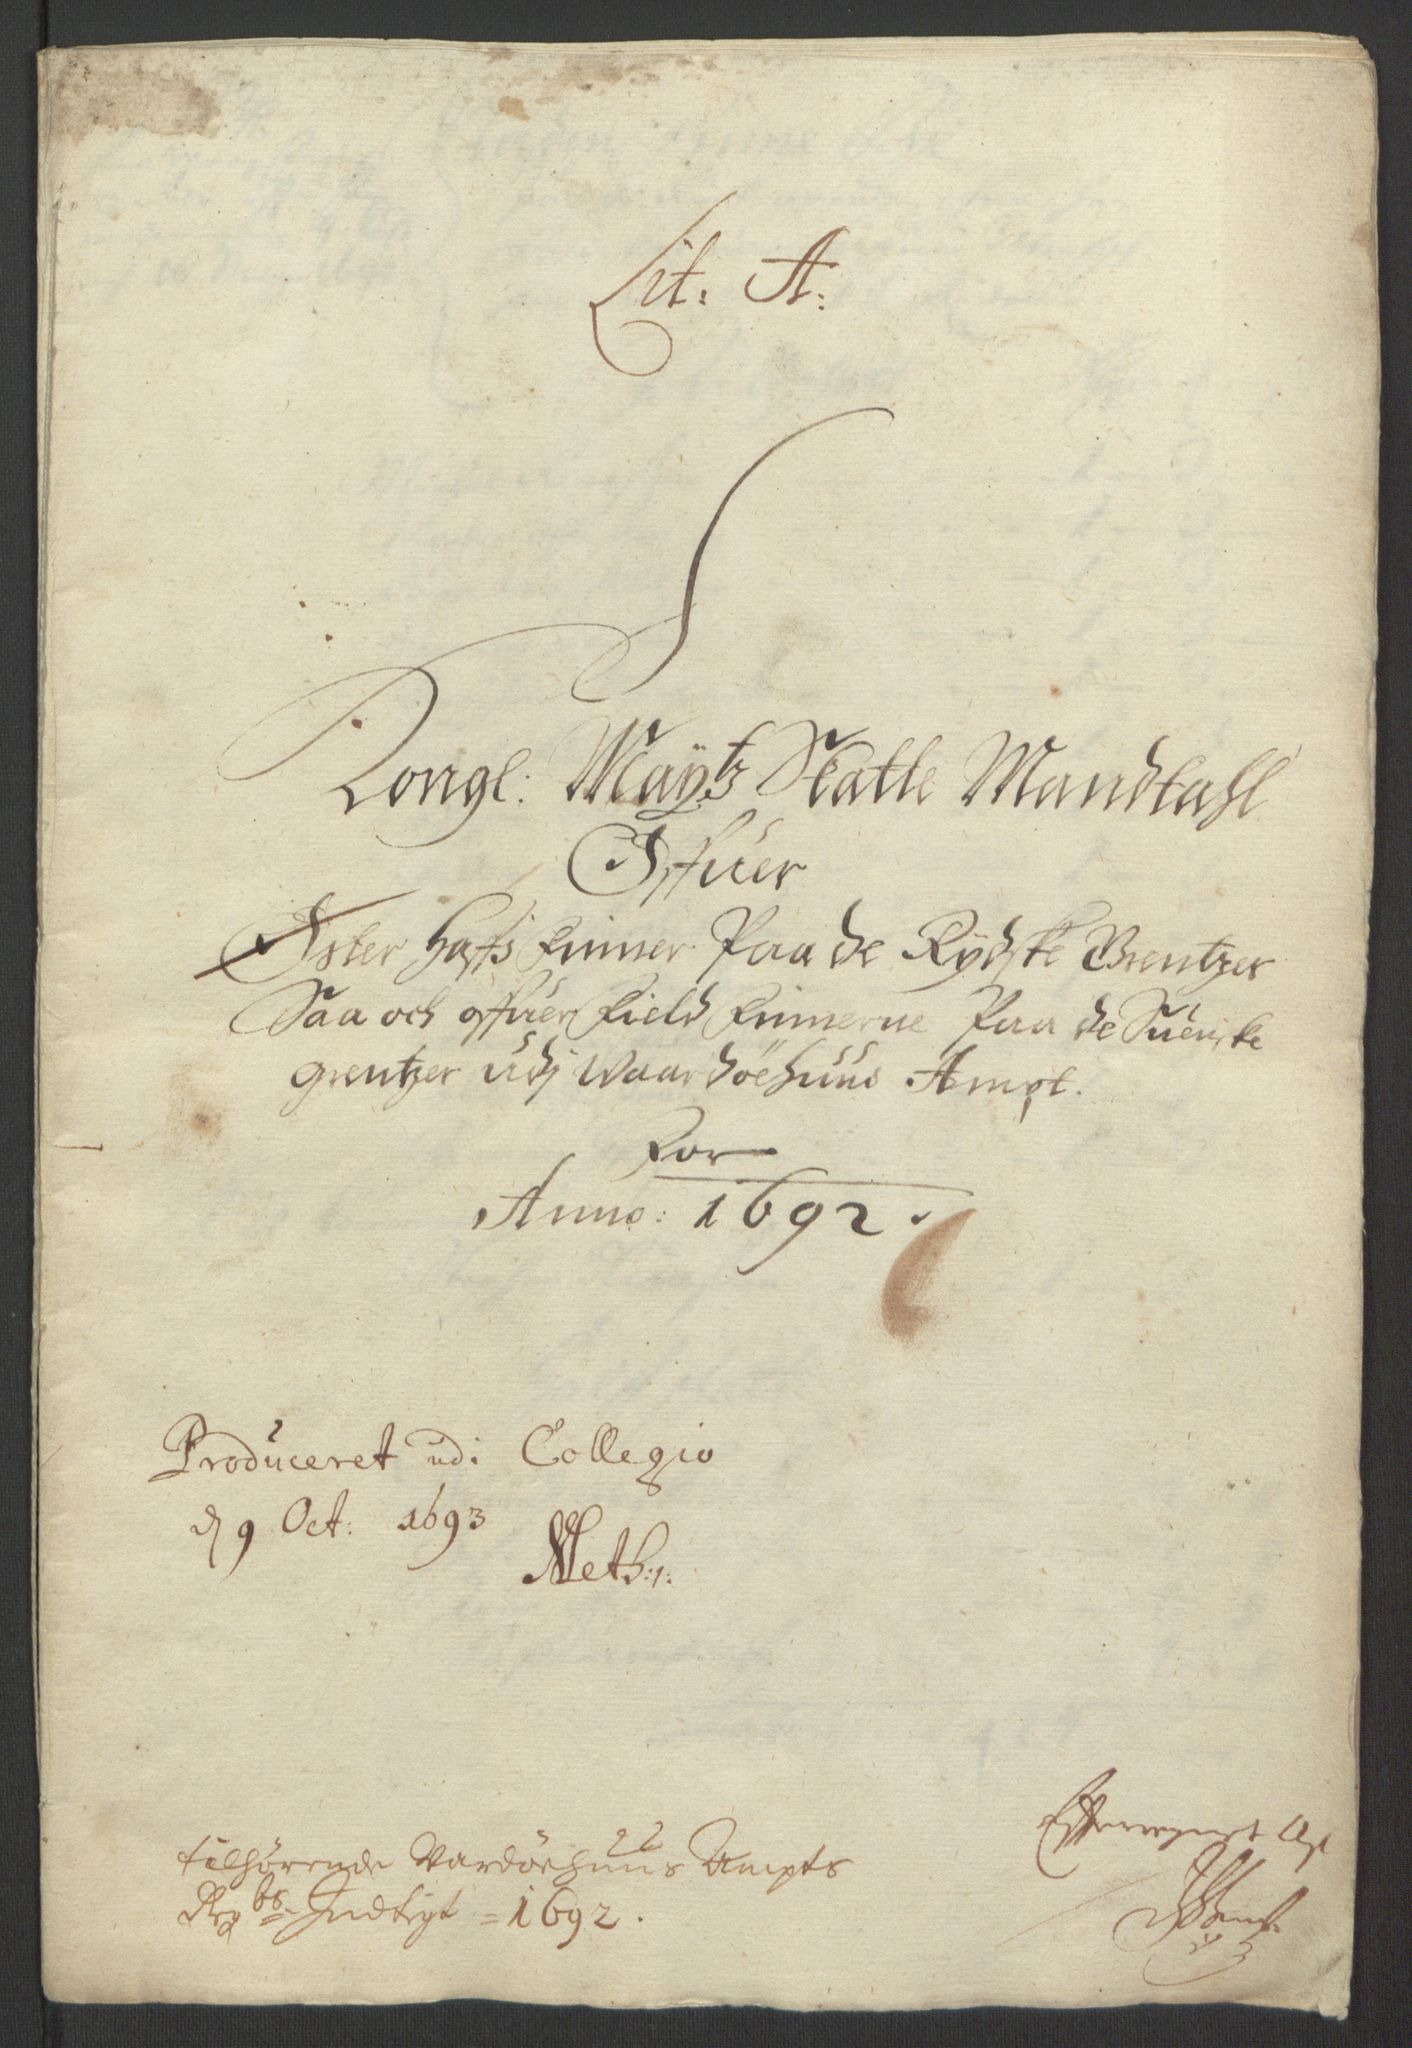 Lit. A:
Kongl: Mayts Skatte Mandtahl
Offuer
Øster hafs finner Paa de Rydske Grentzer
Saa och offuer Field Finnerne Paa de Suenske
grentzer udj Waardøehuus Ampt.
For
Anno: 1692.
Produceret udi Collegio
d 9 Oct: 1693
Meth:
tilhørende Vardøehuus Ampts
Regbs Indtegt = 1692.
Efterregnet